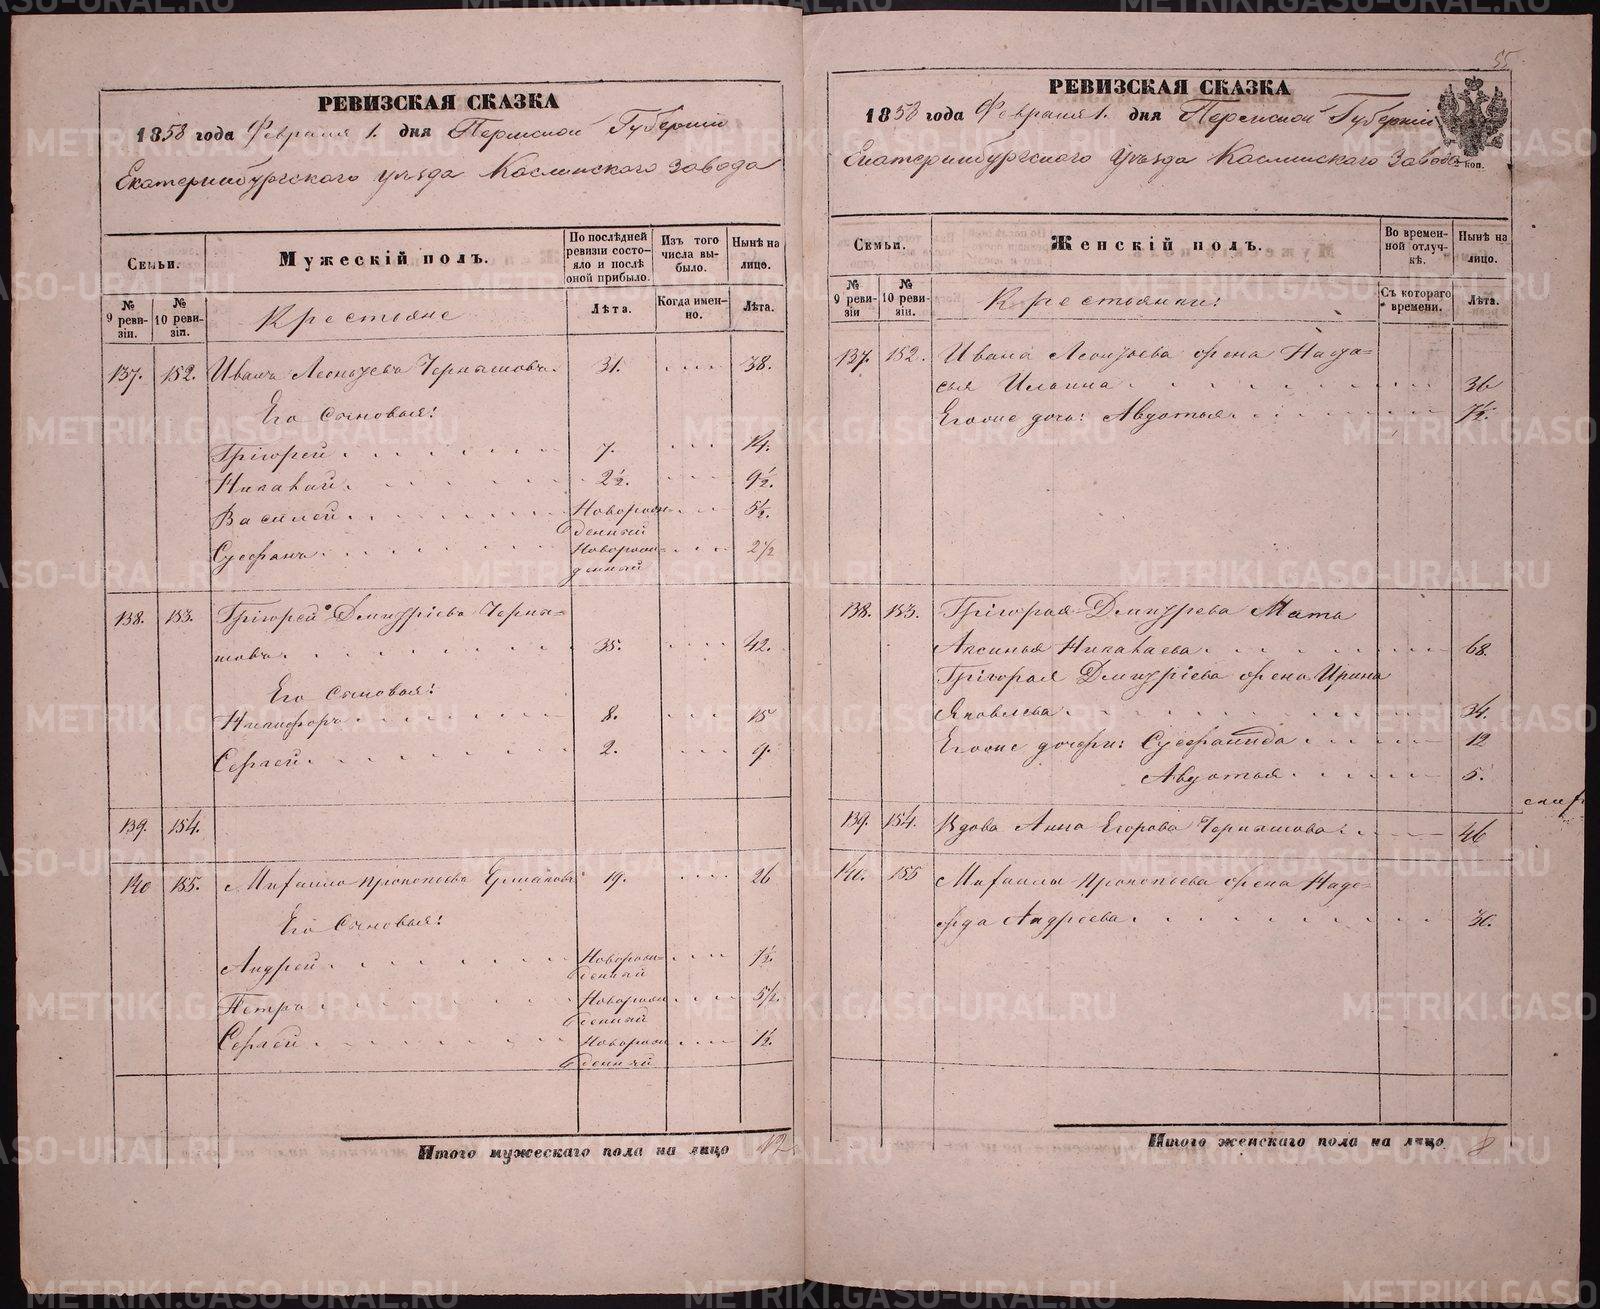 РЕВИЗСКАЯ СКАЗКА
1858 года Февраля 1. дня Пермской Губерніи
Екатеринбургского уѣзда Каслинского завода
Семьи.
Мужескій полъ.
По послѣдней ревизіи состояло и послѣ оной прибыло.
Изъ того числа выбыло.
Нынѣ на лицо.
№ 9 ревизіи.
№ 10 ревизіи.
Крестьяне
Лѣта.
Когда именно.
Лѣта.
137. 152. Иванъ Леонтьевъ Чернышовъ. 31. 38.
Его сыновья:
Григорей 7. 14.
Николай 2½. 9½.
Василей Новорожденный 5½.
Стефанъ Новорожденный 2½
138. 153. Григорей Дмитріевъ Черны-
шовъ 35. 42.
Его сыновья:
Никифоръ 8. 15
Сергей 2. 9.
139. 154.
140 155. Михаило Прокопьевъ Ермаковъ 19. 26
Его Сыновья:
Андрей Новорожденный 7½.
Петръ Новорожденный 5½.
Сергей Новорожденный 1½.
Итого мужескаго пола на лицо 12
55
РЕВИЗСКАЯ СКАЗКА
1858 года Февраля 1. дня Пермской Губерніи
Екатеринбургского уѣзда Каслинского завода
коп.
Семьи.
Женскій полъ.
Во временной отлучкѣ.
Нынѣ на лицо.
№ 9 ревизіи
№ 10 ревизіи.
Крестьянки:
Съ котораго времени.
Лѣта.
137. 152. Ивана Леонтьева жена Наста-
сья Ильина 36
Егоже дочь: Авдотья 7½.
138. 153. Григорья Дмитрева Мать
Аксинья Николаева 68.
Григорья Дмитріева жена Ирина
Яковлева 34.
Егоже дочери: Стефанида 12
Авдотья 5.
139. 154. Вдова Анна Егорова Чернышова 46
140. 155 Михаилы Прокопьева жена Наде-
жда Андреева 30.
Итого женскаго пола на лицо 8
METRIKI.GASO-URAL.RU